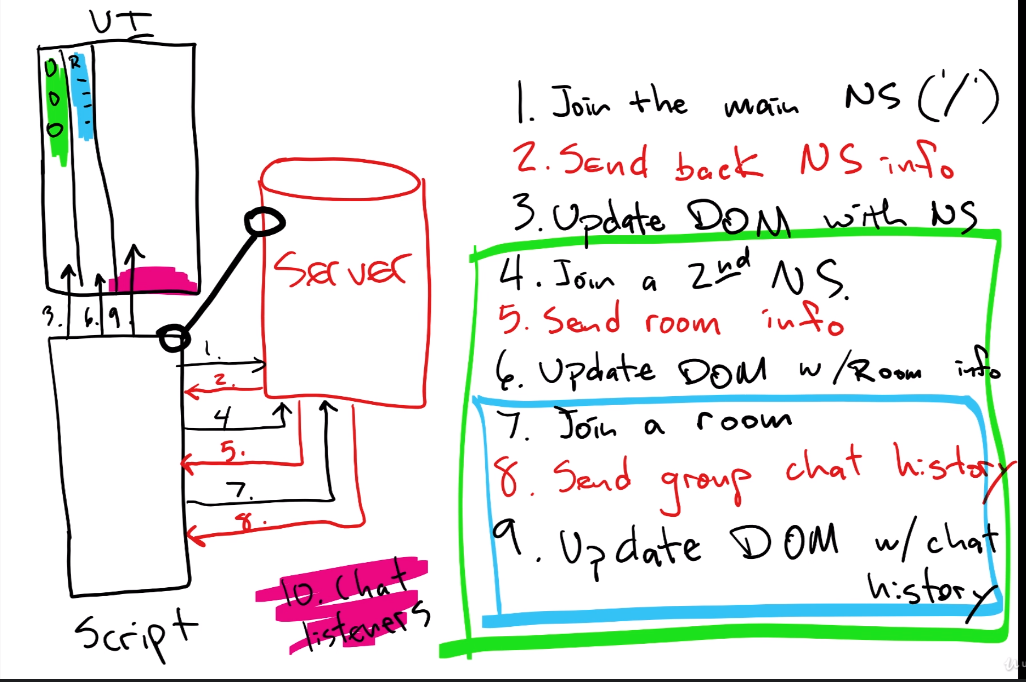 UI
R
3. 6. 9.
Server
1.
2.
4
5.
7.
8.
Script
10. Chat
listeners
1. Join the main NS ('/')
2. Send back NS info
3. Update DOM with NS
4. Join a 2nd NS.
5. Send room info
6. Update DOM w/Room info
7. Join a room
8. Send group chat history
9. Update DOM w/ chat
history